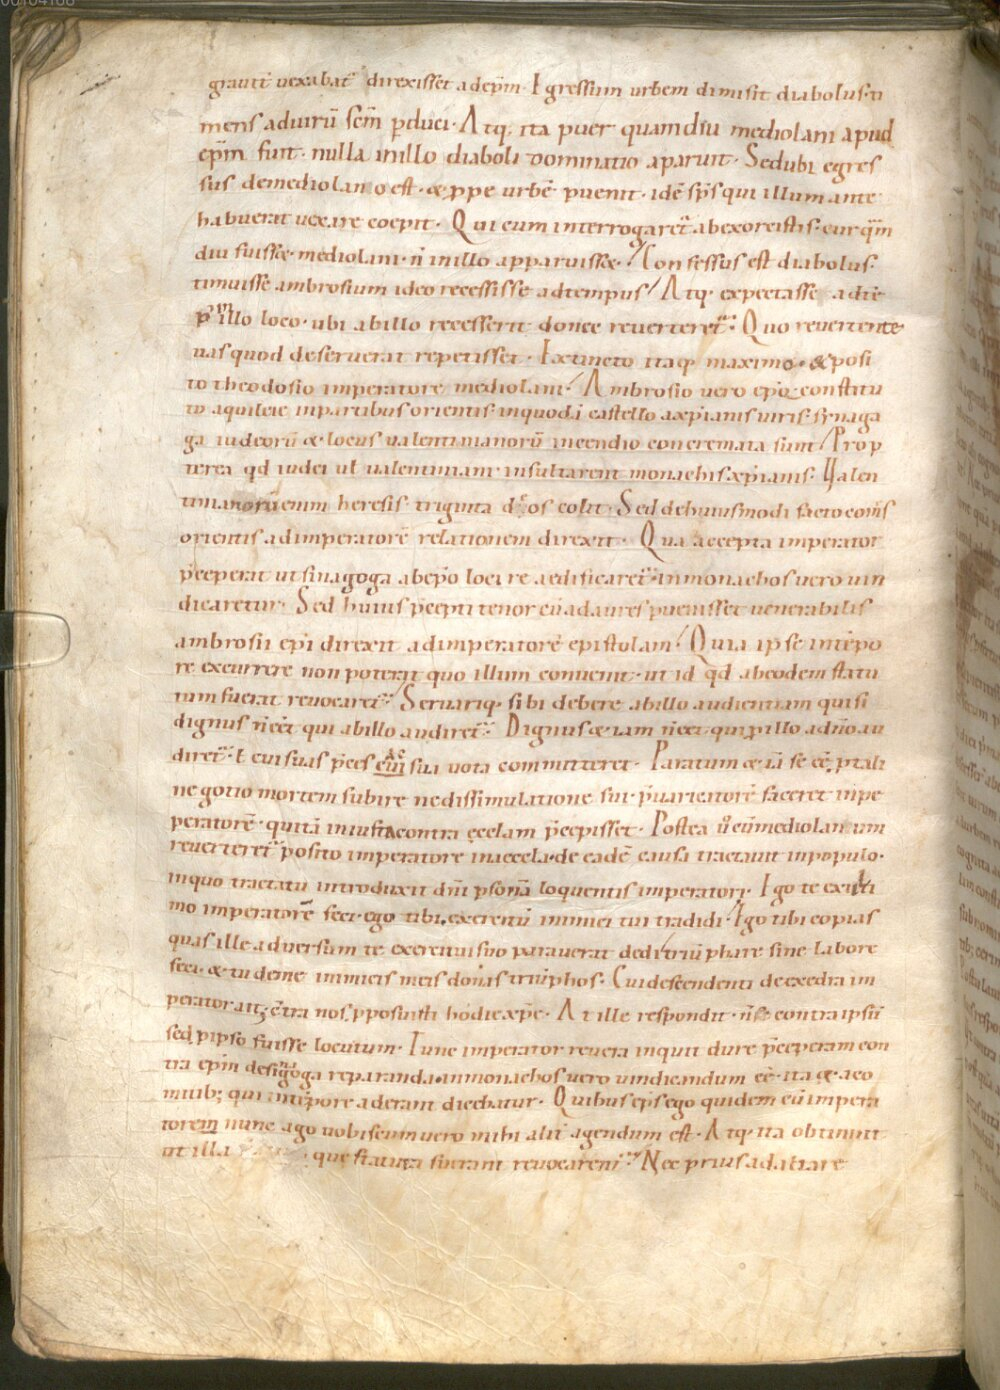 00104168
grauit uexabat direxisset adepm. Egressum urbem dimisit diabolus. ti
mens aduirū scm pduci. Atq; ita puer quamdiu mediolani apud
epm fuit. nulla inillo diaboli dominatio aparuit. Sedubi egres
sus demediolano est. & ppe urbē puenit. idē sps qui illum ante
habuerat uexare coepit. Qui cum interrogaret abexorcistis. cur qm
diu fuisset mediolani. n inillo apparuisset. Confessus est diabolus.
timuisse ambrosium ideo recessisse adtempus. Atq; expectasse
illo loco. ubi abillo recesserit donec reuerteret. Quo reuertente
uas quod deseruerat repetisset. Extincto itaq; maximo. & posi
to theodosio imperatore mediolani. Ambrosio uero epo constitu
to aquileie inpartibus orientis. inquodā castello axpianis uiris. synago
ga iudeorū & locus ualentinianorū incendio concremata sunt. Prop
terea qd iudei ul ualentiniani insultarent monachis xpianis. Ualen
tinianorū enim heresis. triginta deos colit. Sed dehuiusmodi facto comes
orientis adimperatorē relationem direxit. Qua accepta imperator
peeperat ut sinagoga abepo loci re aedificaret. inmonachos uero uin
dicaretur. Sed huius pcepti tenor cū adaures puenisset uenerabilis
ambrosii epi direxit adimperatorē epistolam. Quia ipse intēpo
re excurrere non poterat quo illum conuenit. ut id qd abeodem statu
tum fuerat reuocaret. Seruariq; sibi debere abillo audientiam qui si
dignus n eet qui abillo audiret. Dignus & iam n eet qui pillo adno au
diret. t cui suas pces cui sua uota committeret. Paratum & iā se eē. ptali
negotio mortem subire nedissimulatione sui. puaricatorē faceret impe
ratorē. qui tā iniusta contra ecclam pcepisset. Postea ū cū mediolanium
reuerteret posito imperatore inaeccla. de eadē causa tractauit inpopulo.
inquo tractatu introduxit dni psonā loquentis imperatori. Ego te exulti
mo imperatorē feci. ego tibi exercitū inimici tui tradidi. Ego tibi copias
quas ille aduersum te exercitui suo parauerat dedi. triūphare sine labore
feci. & tu deme inimicis meis donas triūphos. Cui descendenti de exedra im
perator ait. cōtra nos pposuisti hodie xpe. At ille respondit. contra ipsū
sed pipso fuisse locutum. Tunc imperator reuera inquit dure pceperam con
tra epm desigoga reparanda. inmonachos uero uindicandum eē. ita & aco
mitib; qui intēpore aderant dicebatur. Quibus eps ego quidem cū impera
torem nunc ago uobiscum uero mihi alit agendum est. Atq; ita obtinuit
ut illa que statuta fuerant reuocarent. Nec prius adaltare